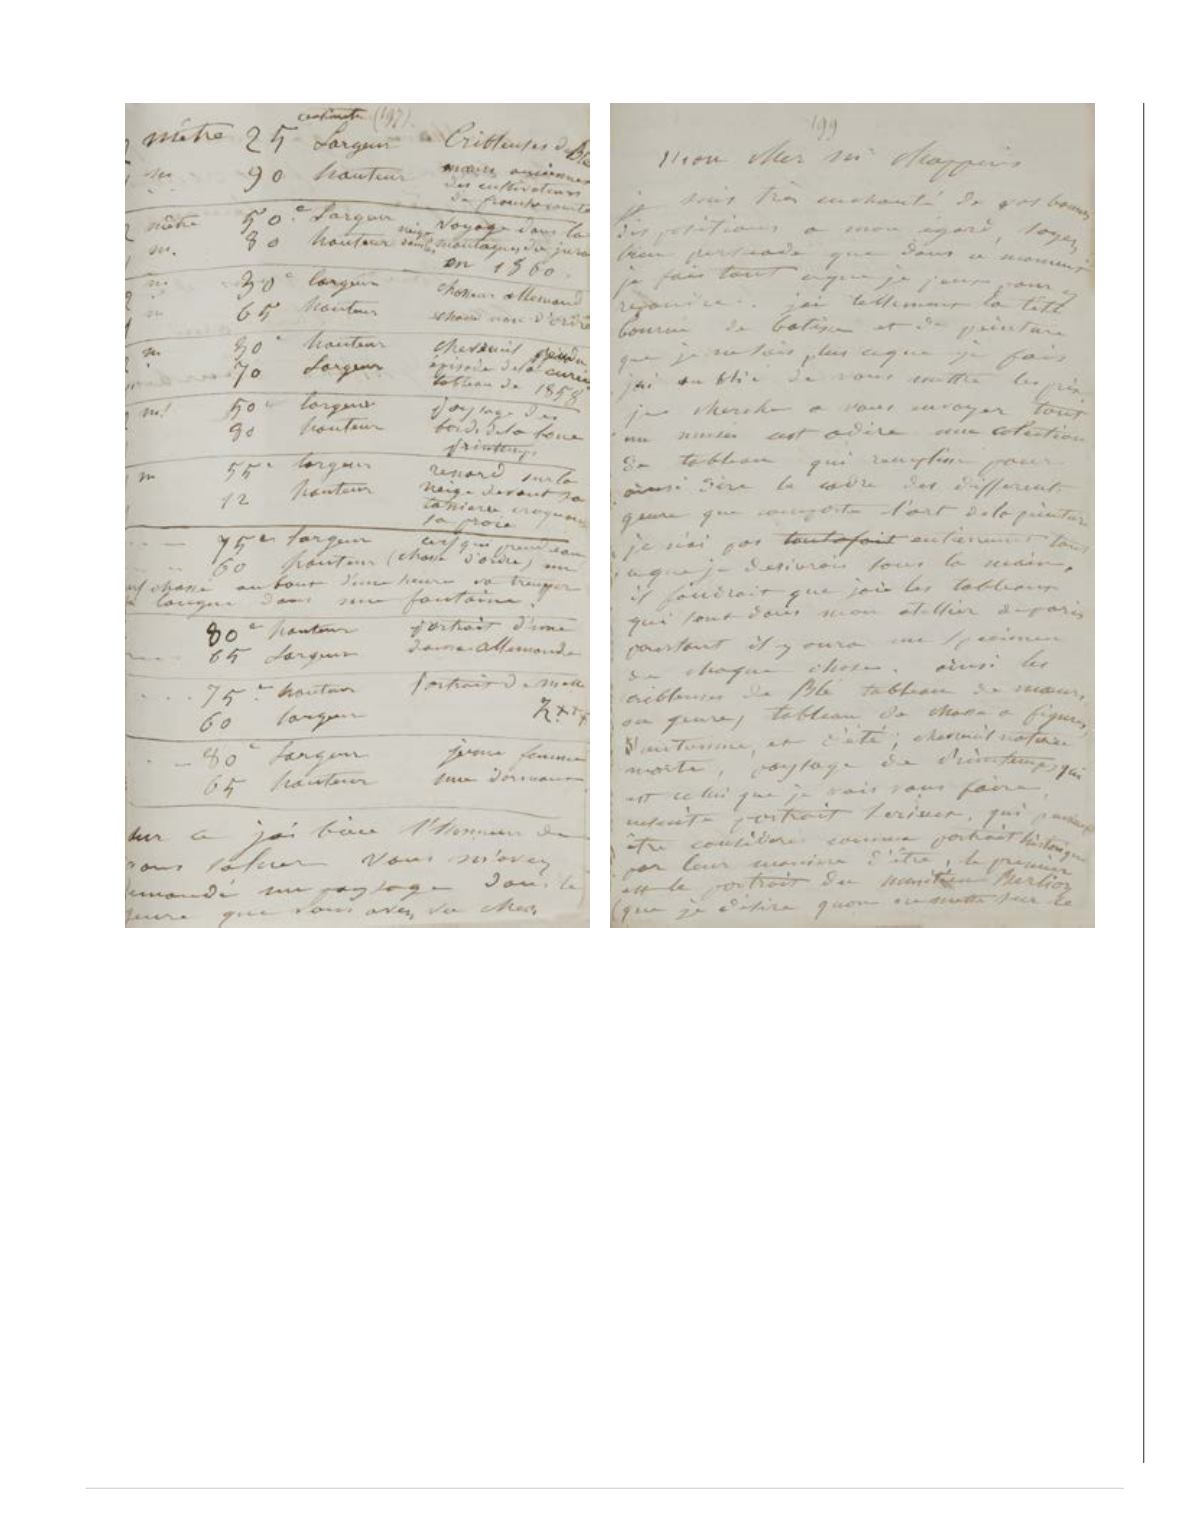 centimètre (197).
mètre 25 Largeur Cribleuses de Blé
90 hauteur mœurs anciennes
des cultivateurs
de franche comté
mètre 50 c Largeur voyage dans la
m. 80 hauteur neige montagnes du jura
en 1860.
m 90 c largeur chasseur allemand
m 65 hauteur
m 90 c hauteur chevreuil pendu
70 Largeur épisode de la curée
tableau de 1858
m! 50 c largeur paysage des
90 hauteur bords de la loue
printemps
m 55 c largeur renard sur la
12 hauteur neige devant sa
tanière croquant
sa proie
75 c largeur cerf qui prend eau
60 hauteur (chasse d'ordre) un
cerf chassé au bout d'une heure va tremper
la langue dans une fontaine.
80 c hauteur portrait d'une
65 Largeur dame allemande
75 c hauteur Portrait de
60 largeur
80 c Largeur jeune femme
65 hauteur une dormeuse
sur ce jai bien l'honneur de
vous saluer Vous m'avez
demandé un paysage dans le
genre que vous avez vu chez
199
Mon cher mr chappuis
je suis très enchanté de vos bonnes
dispositions a mon égard, soyez
bien persuadé que dans ce moment
je fais tout ceque je peux pour y
repondre. jai tellement la tête
bourrée de batisse et de peinture
que je ne sais plus ceque je fais
jai oublié de vous mettre les prix,
je cherche a vous envoyer tout
un musée cest adire une colection
de tableau qui remplisse pour
ainsi dire le cadre des different
genre que comporte l'art de la peinture
je n'ai pas toutafait entierement tout
ceque je desirerais sous la main,
il faudrait que jaie les tableaux
qui sont dans mon attellier de paris
pourtant il y aura un specimen
de chaque chose. ainsi les
cribleuses de Blé tableau de mœurs
ou genre, tableau de chasse a figures
d'automne, et d'été, chevreuil nature
morte, paysage de Printemps, qui
est celui que je vais vous faire,
portrait qui
être considérés comme portrait historique
par leur manière d'être, le premier
est le portrait du musitien Berlioz
(que je désire quon ne mette sur le